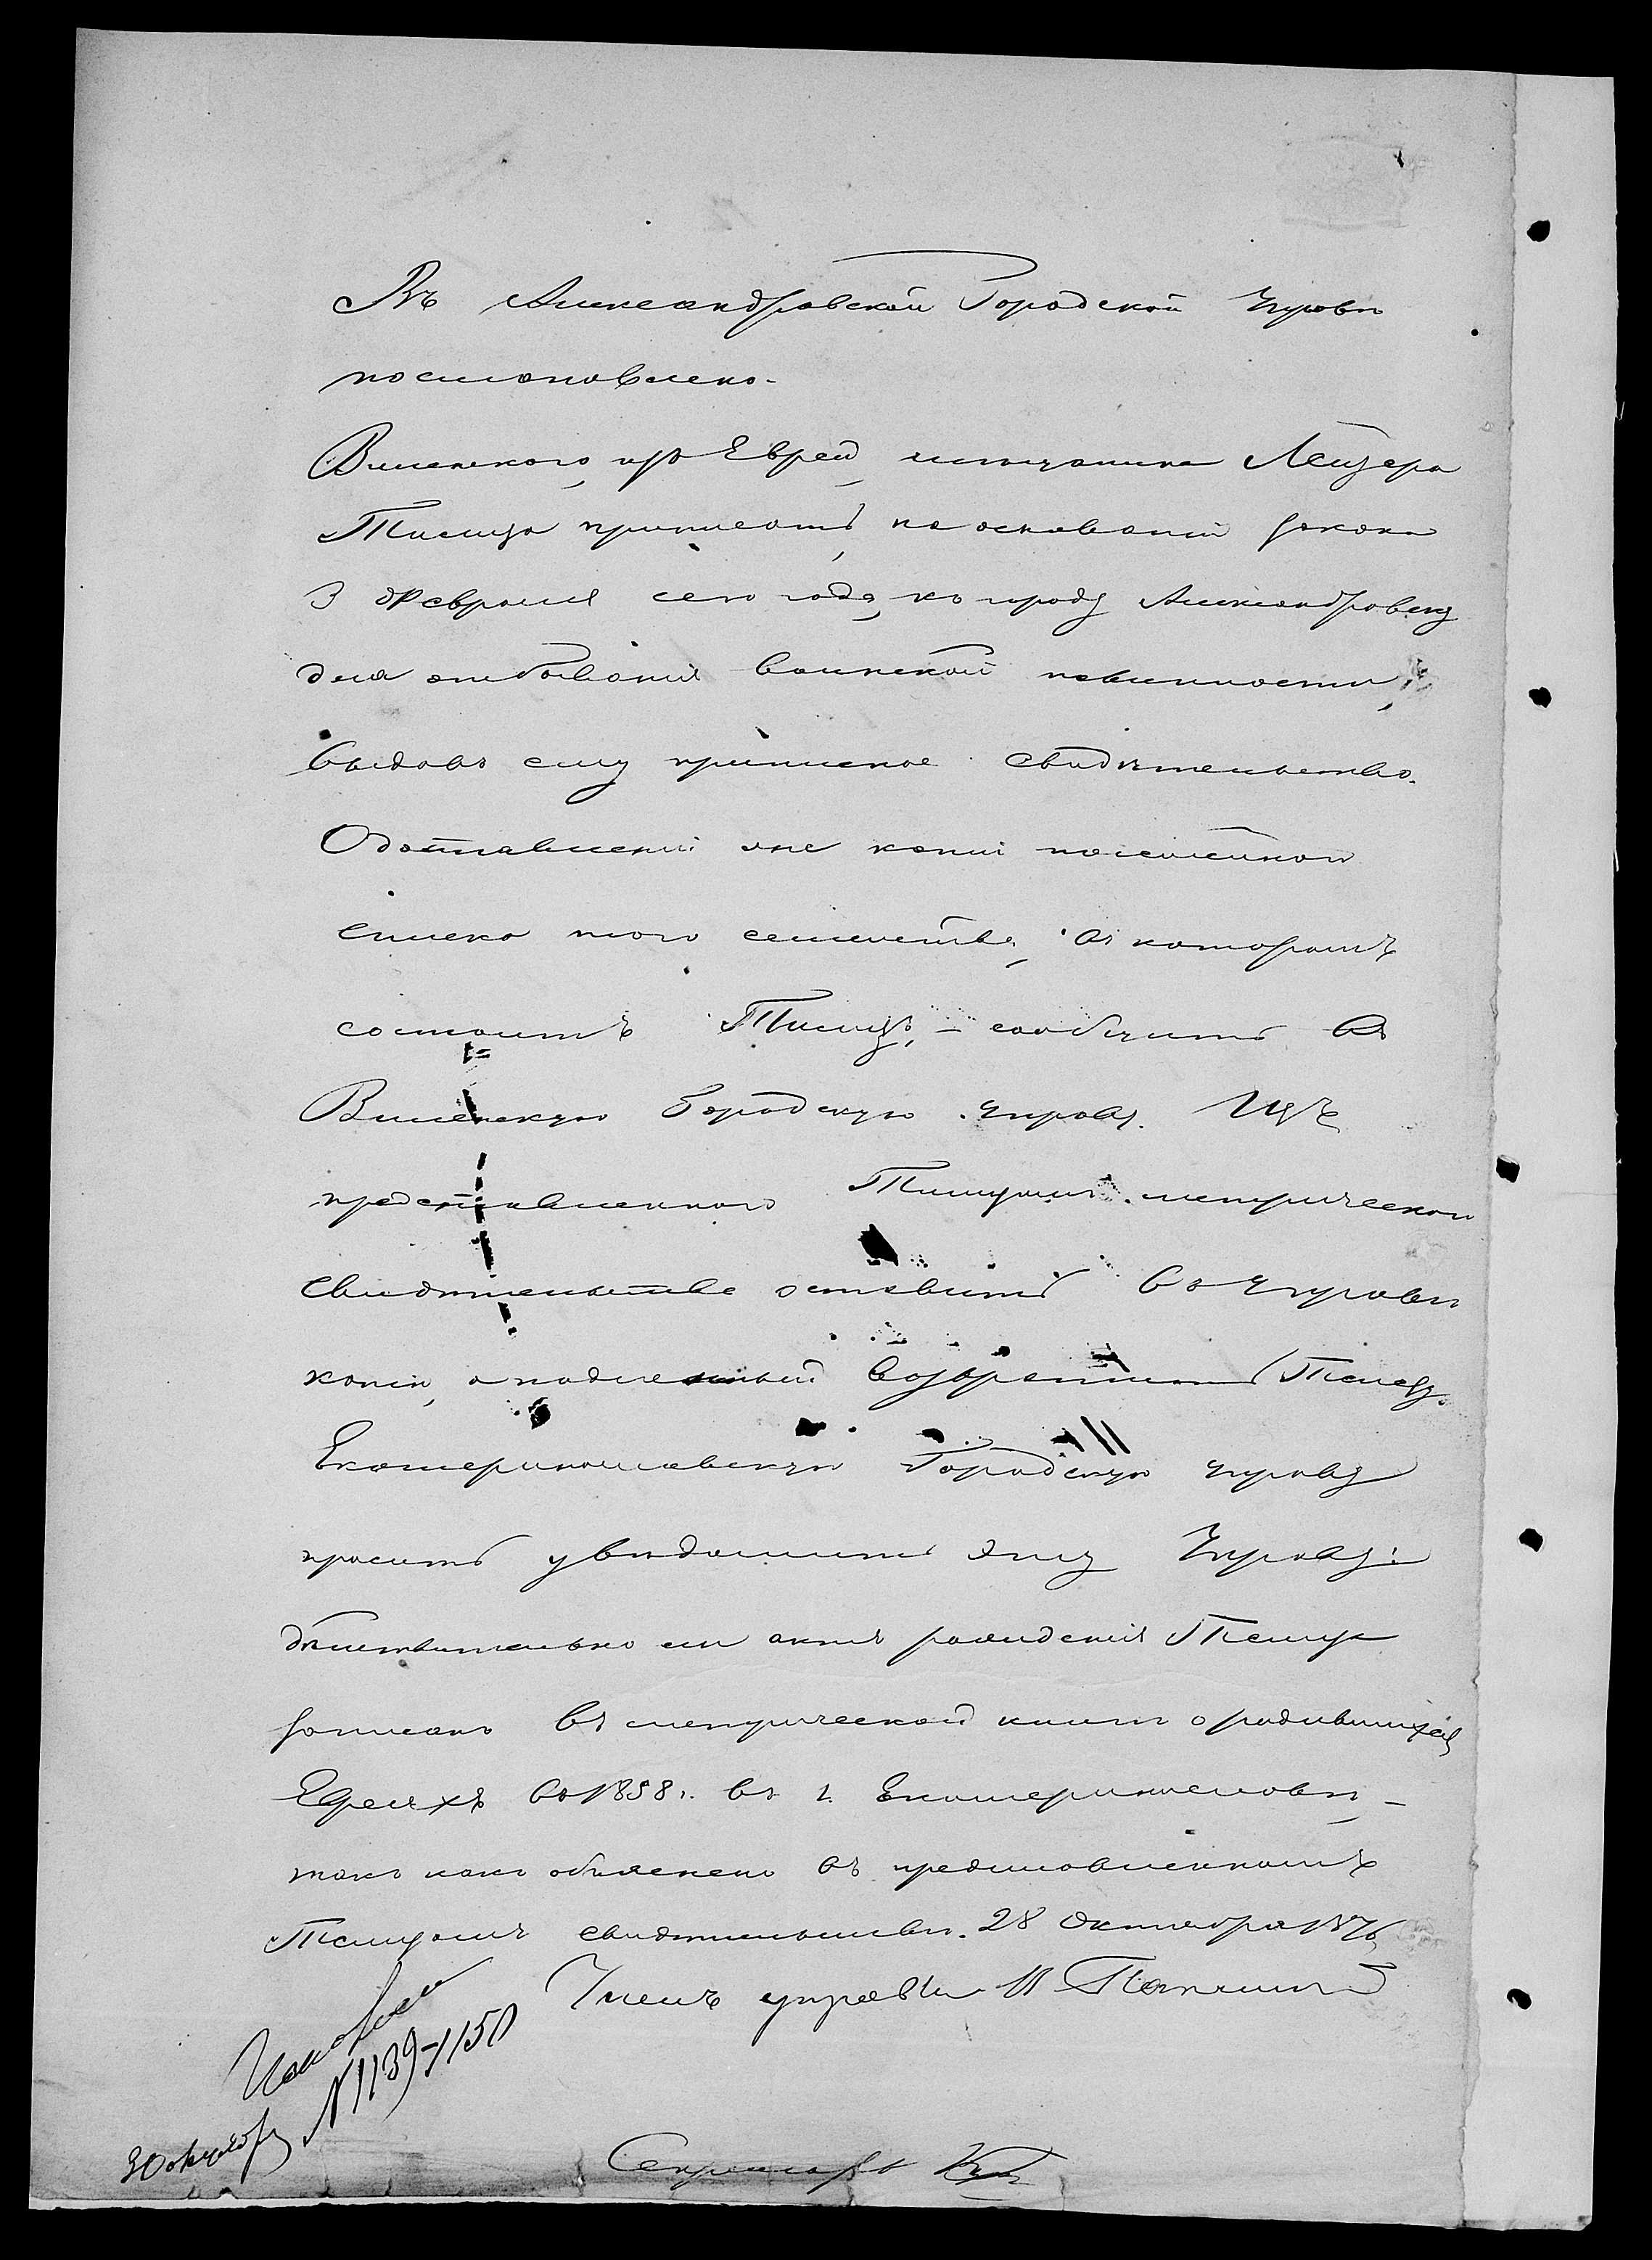 Въ Александровской Городской Управѣ
постановлено.
Виленскаго, изъ Евреевъ, мѣщанина Лейзера
приписать, на основаніи закона
3 Февраля сего года, къ городу Александровску
для отбыванія воинской повинности,
выдавъ ему приписное свидѣтельство.
О доставленіи мнѣ копіи посемейнаго
списка того семейства, въ которомъ
состоитъ – сообщить въ
Виленскую Городскую управу. Изъ
представленнаго метрическаго
свидѣтельства оставить въ Управѣ
копію, а подлинный возвратить
Екатеринославскую Городскую управу
просить увѣдомить эту Управу:
дѣйствительно ли актъ рожденія
записанъ въ метрической книгѣ о родившихся
Евреяхъ въ 1858 г. въ г. Екатеринославѣ, –
такъ какъ объяснено въ представленномъ
свидѣтельствѣ. 28 Октября 1876
Членъ управы
N 1139-1150
30 октября
Секретарь